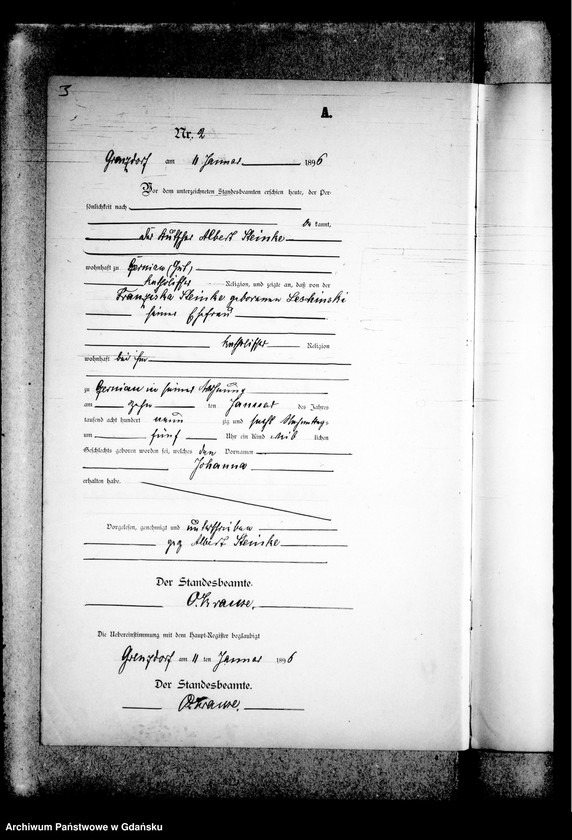 3
A.
Nr. 2
Grenzdorf am 11 Januar 1896
Vor dem unterzeichneten Standesbeamten erschien heute, der Per-
sönlichkeit nach
kannt,
der Kutscher Albert Steinke
wohnhaft zu Gernian (Gut)
katholischer Religion, und zeigte an, daß von der
Franziska Steinke geborenen Leschinski
seiner Ehefrau
katholischer Religion
wohnhaft bei ihm
zu Gernian in seiner Wohnung
am zehn ten Januar des Jahres
tausend acht hundert neun zig und sechs Nachmittag-
um fünf Uhr ein Kind weib lichen
Geschlechts geboren worden sei, welches den Vornamen
Johanna
erhalten habe.
Vorgelesen, genehmigt und unterschrieben
gez Albert Steinke
Der Standesbeamte.
O. Krause.
Die Uebereinstimmung mit dem Haupt-Register beglaubigt
Grenzdorf am 11 ten Januar 1896
Der Standesbeamte.
O. Krause.
Archiwum Państwowe w Gdańsku